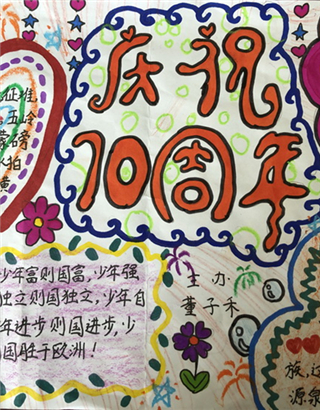 庆祝
70周年
征难
五岭
磅
人拍
黄
少年富则国富,少年强
独立则国独立,少年自
年进步则国进步,少
国胜于欧洲!
主办
董子禾
族,辽
源泉